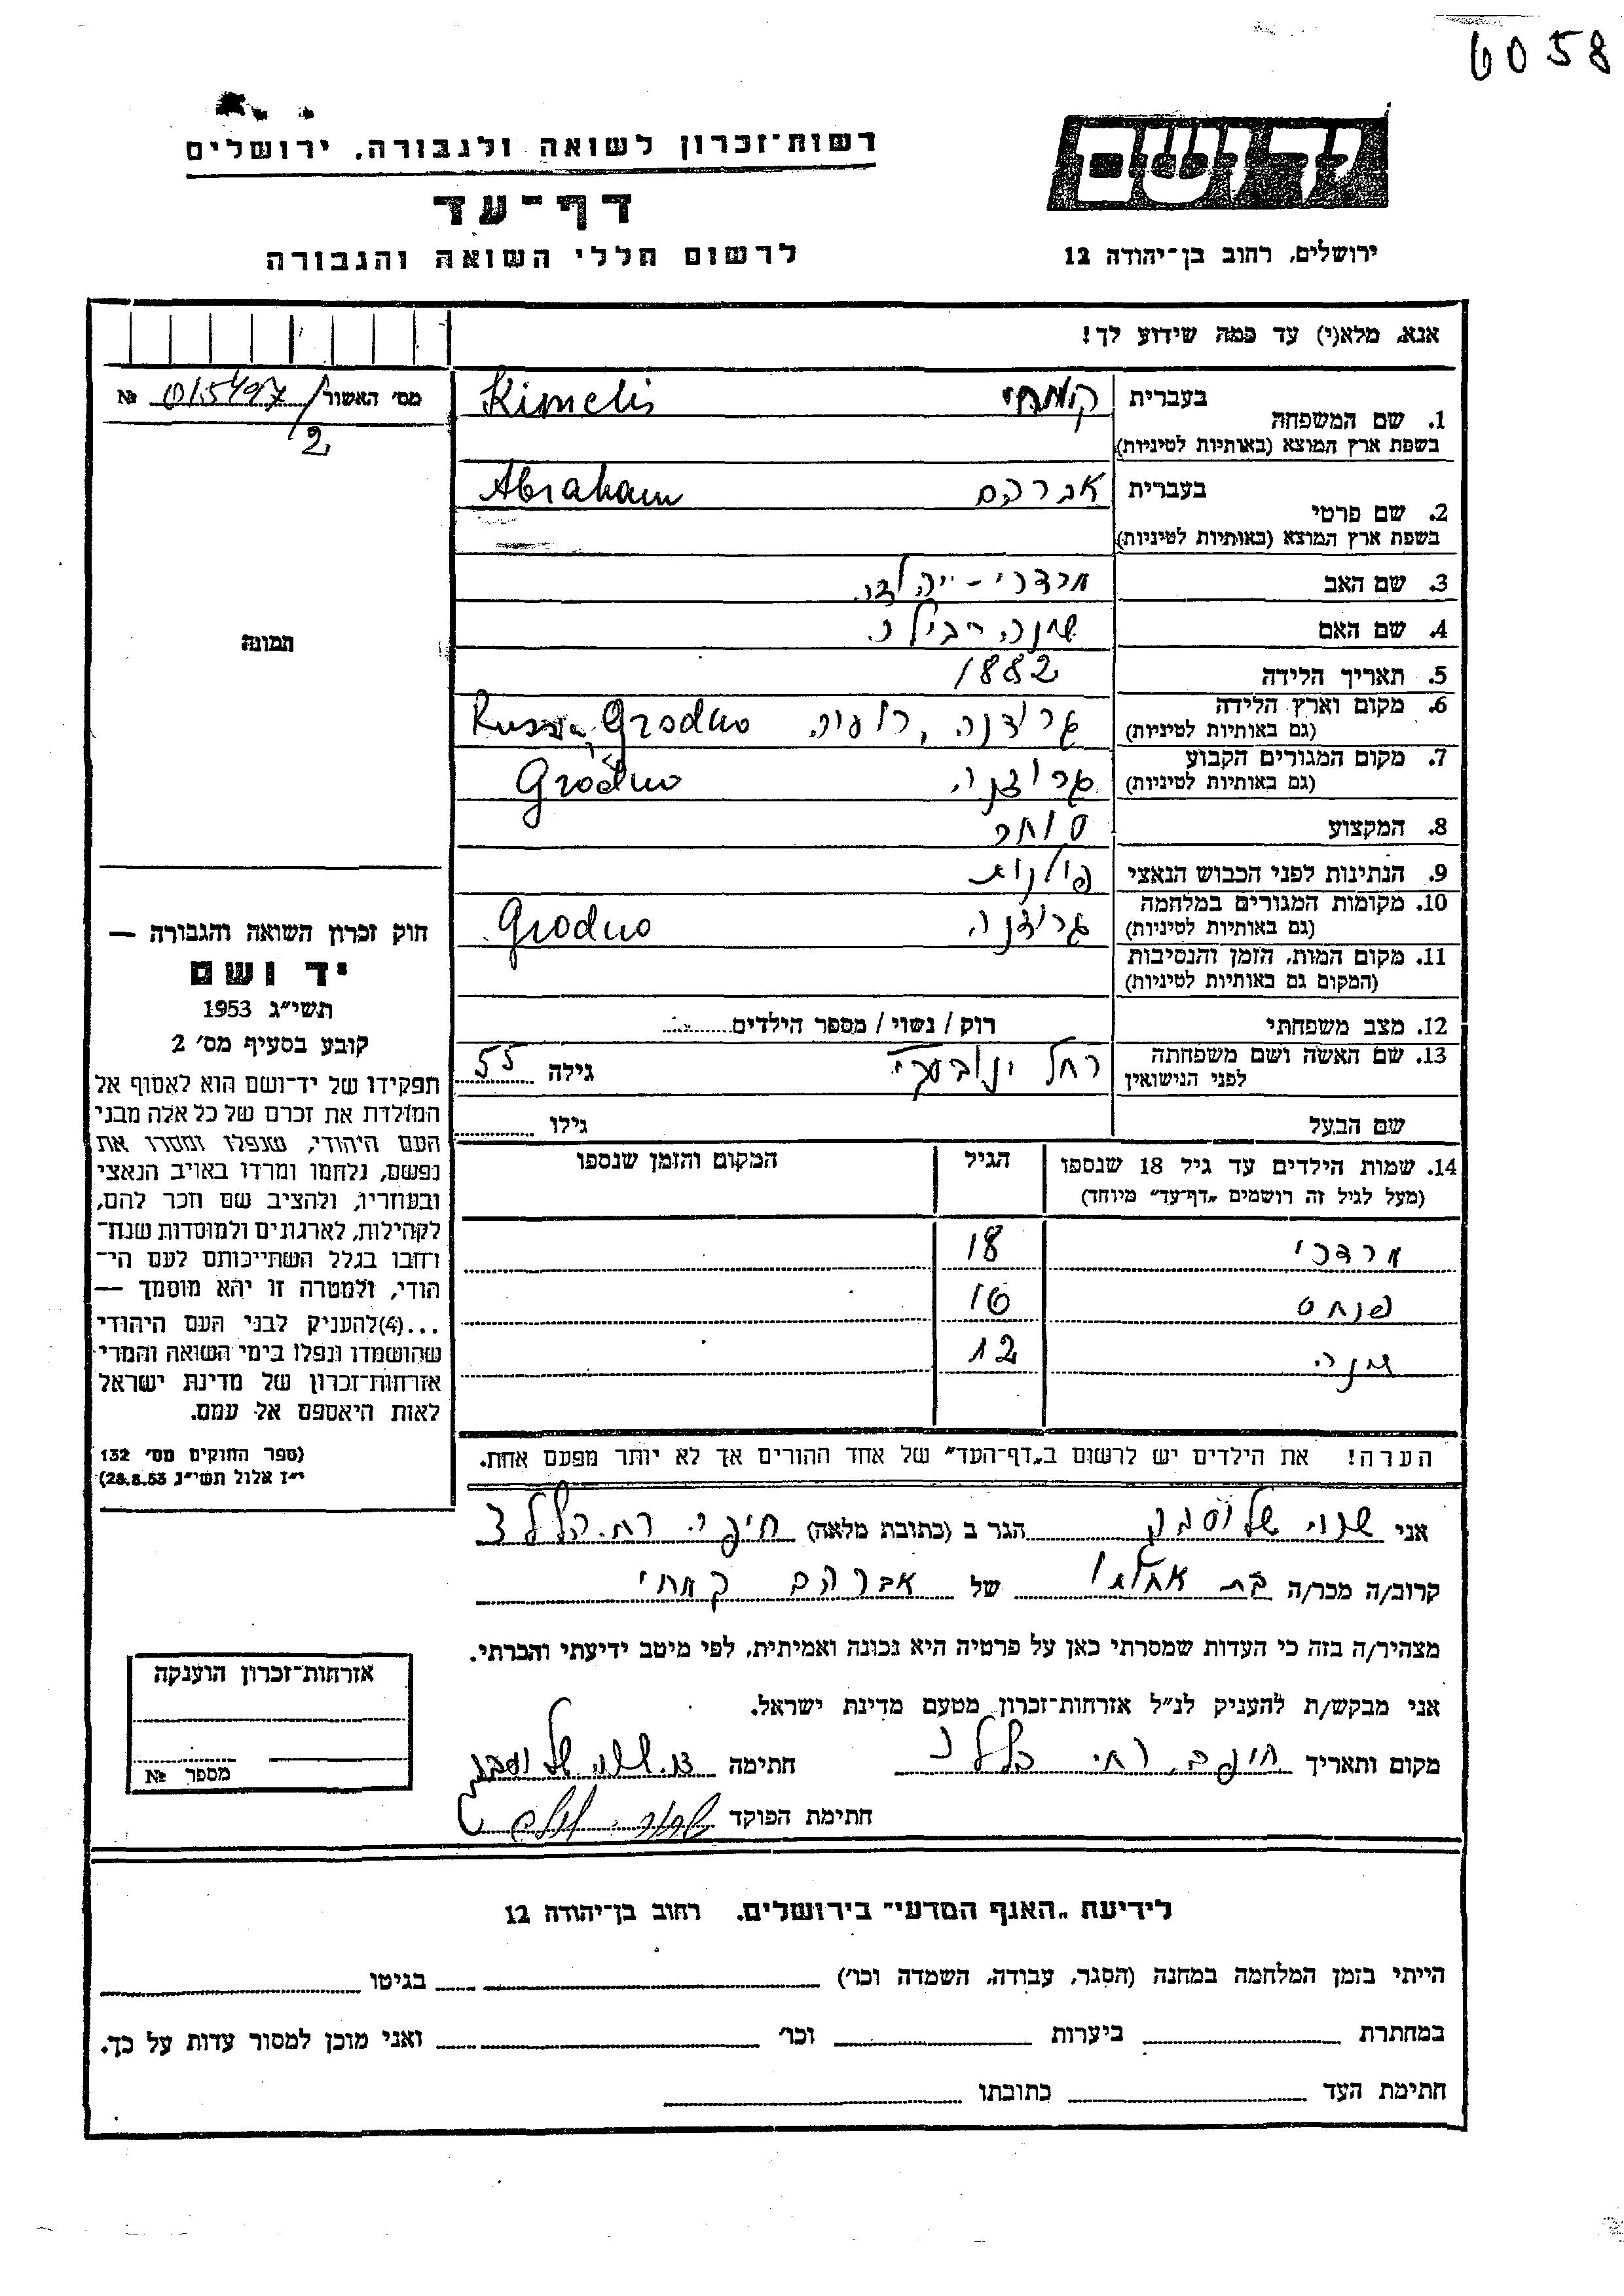 6058
רשות־זכרון לשואה ולגבורה, ירושלים
ידושם
דף־עד
לרשום חללי השואה והגבורה
ירושלים, רחוב בן־יהודה 12
אנא, מלא(י) עד כמה שידוע לך!
מס׳ האשור 015497/2 №
1. שם המשפחה
בעברית קמחי Kimchi
בשפת ארץ המוצא (באותיות לטיניות)
2. שם פרטי
בעברית אברהם Abraham
בשפת ארץ המוצא (באותיות לטיניות)
3. שם האב מרדכי -
4. שם האם
5. תאריך הלידה 1882
6. מקום וארץ הלידה גרודנה, רוסיה Russia, Grodno
(גם באותיות לטיניות)
7. מקום המגורים הקבוע גרודנה Grodno
(גם באותיות לטיניות)
8. המקצוע סוחר
9. הנתינות לפני הכבוש הנאצי פולנית
10. מקומות המגורים במלחמה גרודנה Grodno
(גם באותיות לטיניות)
11. מקום המות, הזמן והנסיבות
(המקום גם באותיות לטיניות)
12. מצב משפחתי רוק / נשוי / מספר הילדים
13. שם האשה ושם משפחתה רחל גילה 55
לפני הנישואין
שם הבעל גילו
14. שמות הילדים עד גיל 18 שנספו הגיל המקום והזמן שנספו
(מעל לגיל זה רושמים „דף־עד” מיוחד)
מרדכי 18
פנחס 16
12
הערה! את הילדים יש לרשום ב„דף־העד” של אחד ההורים אך לא יותר מפעם אחת.
תמונה
חוק זכרון השואה והגבורה —
יד ושם
תשי״ג 1953
קובע בסעיף מס׳ 2
תפקידו של יד־ושם הוא לאסוף אל
המולדת את זכרם של כל אלה מבני
העם היהודי, שנפלו ומסרו את
נפשם, נלחמו ומרדו באויב הנאצי
ובעוזריו, ולהציב שם וזכר להם,
לקהילות, לארגונים ולמוסדות שנח־
רחבו בגלל השתייכותם לעם הי־
הודי, ולמטרה זו יהא מוסמך —
...(4) להעניק לבני העם היהודי
שהושמדו ונפלו בימי השואה והמרי
אזרחות־זכרון של מדינת ישראל
לאות היאספם אל עמם.
(ספר החוקים מס׳ 132
י״ז אלול תשי״ג 28.8.53)
אני הגר ב (כתובת מלאה) חיפה
קרוב/ה מכר/ה בת אחותו של אברהם קמחי
מצהיר/ה בזה כי העדות שמסרתי כאן על פרטיה היא נכונה ואמיתית, לפי מיטב ידיעתי והכרתי.
אני מבקש/ת להעניק לנ״ל אזרחות־זכרון מטעם מדינת ישראל.
מקום ותאריך חיפה חתימה
חתימת הפוקד
אזרחות־זכרון הוענקה
מספר №
לידיעת „האנף המדעי” בירושלים, רחוב בן־יהודה 12
הייתי בזמן המלחמה במחנה (הסגר, עבודה, השמדה וכו׳) בגיטו
במחתרת ביערות וכו׳ ואני מוכן למסור עדות על כך.
חתימת העד כתובתו